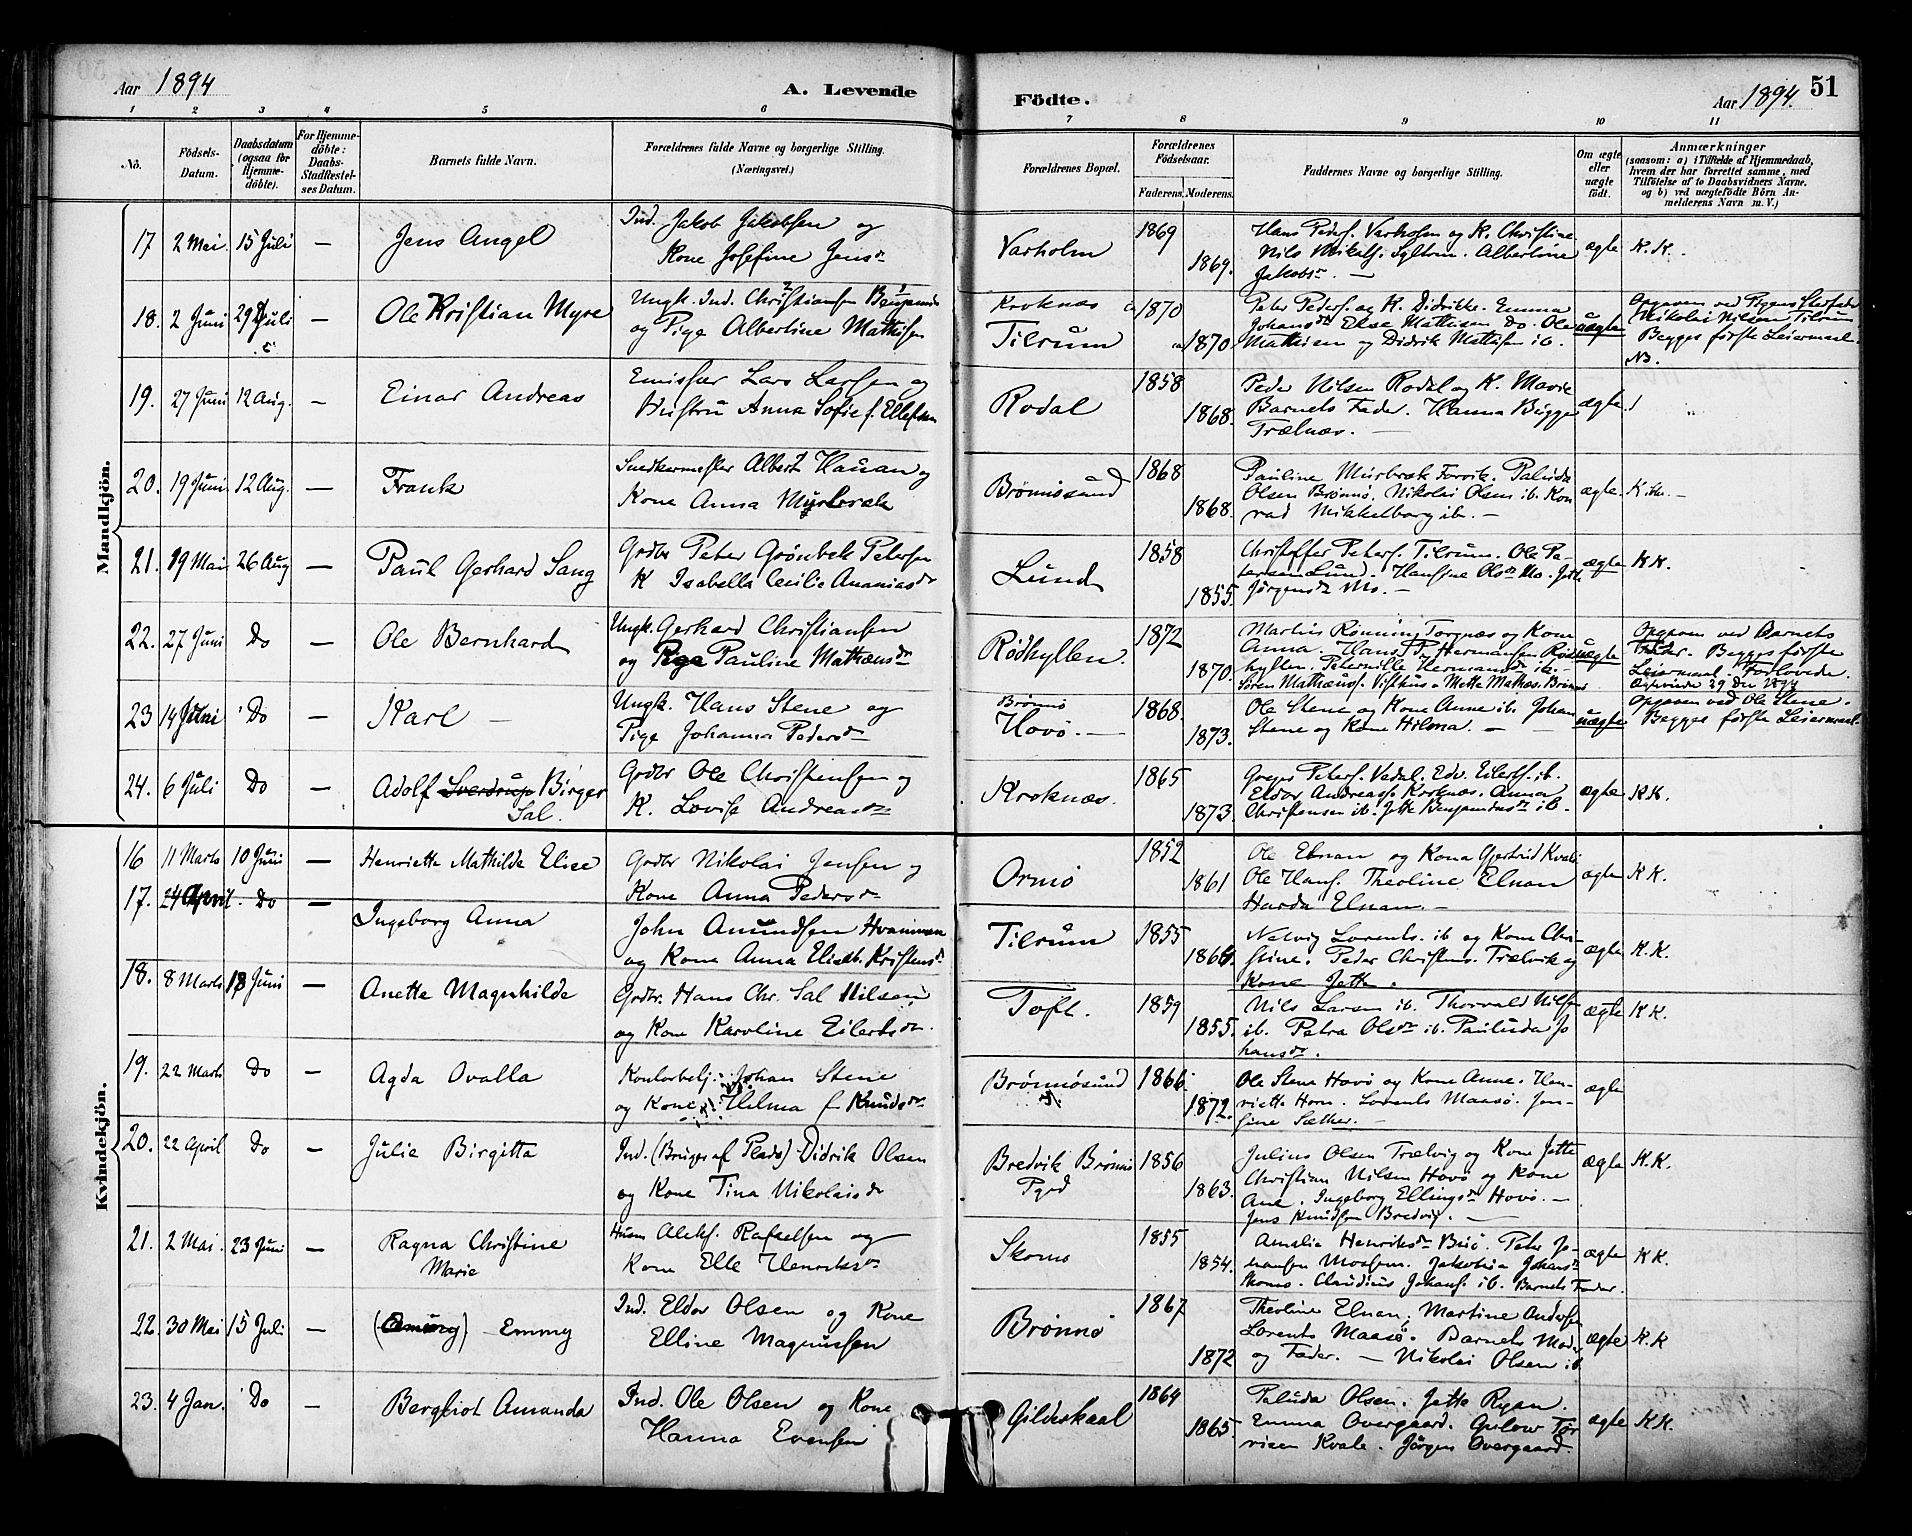 Aar 1894
A. Levende
Födte.
Aar 1894.
51
1 2 3 4 5 6 7 8 9 10 11
No.
Födsels-Datum.
Daabsdatum (ogsaa for Hjemme-döbte).
For Hjemme-döbte: Daabs-Stadfæstel-ses Datum.
Barnets fulde Navn.
Forældrenes fulde Navne og borgerlige Stilling. (Næringsvei.)
Forældrenes Bopæl.
Forældrenes Födselsaar.
Faderens. Moderens.
Faddernes Navne og borgerlige Stilling.
Om ægte eller uægte födt.
Anmærkninger
(saasom: a) i Tilfælde af Hjemmedaab,
hvem der har forrettet samme, med
Tilföielse af to Daabsvidners Navne,
og b) ved uægtefödte Börn An-
melderens Navn m. V.)
Mandkjön.
17 2 Mai. 15 Juli — Jens Angel
Ind. Jakob Jakobsen og
Kone Josefine Jensdr
Varholm 1869 1869.
Hans Peders. Varholm og K. Christine
Nils Mikals. Sylten. Albertine
Jakobsdr —
ægte K. K.
18. 2 Juni 29 Juli — Ole Kristian Myre
Ungk. Ind. Christiansen Benjamins
og Pige Albertine Mathisen
Kroknæs
Tilrum 1870 1870
Peter Peders. og K. Didrikke. Emma
Johansdr Else Mathisen Do. Ole
Mathisen og Didrik Mathisen ib.
uægte
Opgaven ved Pigens Stedfader
Nikolai Nilsen Tilrum
Begges förste Leiermaal.
NB.
19. 27 Juni 12 Aug. — Einar Andreas
Emissær Lars Larsen og
Hustru Anna Sofie f. Ellefsen
Rodal 1858 1868.
Peder Nilsen Rodal og K. Marie
Barnets Fader. Hanna Bugge
Trælnæs. —
ægte.
20. 19 Juni 12 Aug. — Frank
Snedkermester Albert Hauan og
Kone Anna Murbræk
Brønnøsund 1868 1868.
Pauline Murbræk Forvik. Paluda
Olsen Brønnø. Nikolai Olsen ib. Kon
rad Mikkelborg ib. —
ægte.
21. 19 Mai 26 Aug — Paul Gerhard Sang
Grdbr Peter Grønbek Petersen
K Isabella Cecilie Ananiasdr
Lund 1858 1855.
Christoffer Peters. Tilrum. Ole Pe-
tersen Lund. Hansine Olsdr Mo. Jette
Jørgensdr Mo. —
ægte KK.
22. 27 Juni Do — Ole Bernhard
Ungk. Gerhard Christiansen
og Pige Pauline Mathæusdr
Rødhyllen. 1872 1870.
Martin Rønning Torgnæs og Kone
Anna. Hans P. Hermansen Rød-
hyllen. Peternille Hermansdr ib.
Søren Mathæuss. Visthus. Mette Mathæs. Brønnø
uægte
Opgaven ved Barnets
Fader. Begges förste
Leiermaal. Forlovede.
23 14 Juni Do — Karl —
Ungk. Hans Stene og
Pige Johanna Pedersdr
Brønnø
Hovø. — 1868. 1873.
Ole Stene og Kone Anne ib. Johan
Stene og Kone Hilma. —
uægte
Opgaven ved Ole Stene.
Begges förste Leiermaal.
24. 6 Juli Do — Adolf Sverdrup Birger
Sal.
Grdbr Ole Christensen og
K. Lovise Andreasdr
Kroknæs. 1865 1873
Greger Peters. Vedal. Edv. Eilerts. ib.
Eldor Andreass. Kroknæs. Anna
Christensen ib. Jette Benjaminsdr ib.
ægte KK.
Kvindekjön.
16 11 Marts 10 Juni — Henriette Mathilde Elise
Grdbr Nikolai Jensen og
Kone Anna Pedersdr
Ormø 1852 1861
Ole Elnan og Kone Gjertrud Kvale
Ole Hans. Theoline Elnan
Harda Elnan. —
ægte KK.
17. 24 April. Do — Ingeborg Anna
John Amundsen Hvaimoen
og Kone Anna Elisab. Kristensdr
Tilrum 1855 1864.
Nelvig Lorents. ib og Kone Chri-
stine. Peder Christens. Trælvik og
Kone Jette.
ægte K.K.
18. 8 Marts 18 Juni — Anette Magnhilde
Grdbr. Hans Chr. Sal Nilsen
og Kone Karoline Eilertsdr.
Toft. 1859 1855.
Nils Larsen ib. Thorvald Nilss.
ib. Petra Olsdr ib. Pauluda Jo
hansdr.
ægte KK.
19. 22 Marts Do — Agda Ovalla
Kontorbetj. Johan Stene
og Kone Hilma f. Knudsdr
Brønnøsund 1866. 1872.
Ole Stene Hovø og Kone Anne. Hen-
riette Horn. Lorents Maasø. Jen-
sine Sæther. —
ægte
20. 22 April Do — Julie Birgitta
Ind. (Bruger af Plads) Didrik Olsen
og Kone Tina Nikolaisdr
Bredvik Brønnø
Pgd 1856 1863.
Julius Olsen Trælvig og Kone Jette
Christian Nilsen Hovø og Kone
Ane. Ingeborg Ellingsdr Hovø. —
Jens Knudsen Bredvig. —
ægte K.K.
21. 2 Mai. 23 Juni — Ragna Christine
Marie
Husm Aleks. Rafaelsen og
Kone Elle Henriksdr
Skomo 1855 1854.
Amalie Henriksdr Buø. Peter Jo-
hansen Moosem. Jakobia Johansdr
Skomo. Claudius Johans. ib. Barnets Fader.
ægte KK.
22. 30 Mai 15 Juli — (Emmy) Emmy
Ind. Eldor Olsen og Kone
Elline Magnussen
Brønnø 1867 1872
Theoline Elnan, Martine Anders
Lorents Maasø. Barnets Moder
og Fader. — Nikolai Olsen ib.
ægte K.K
23. 4 Jan. Do — Bergliot Amanda
Ind. Ole Olsen og Kone
Hanna Evensen
Gildeskaal 1864 1865.
Paluda Olsen. Jette Ryan.
Emma Overgaard. Gulow Tør
risen Kvale. Jørgen Overgaard.
ægte KK.